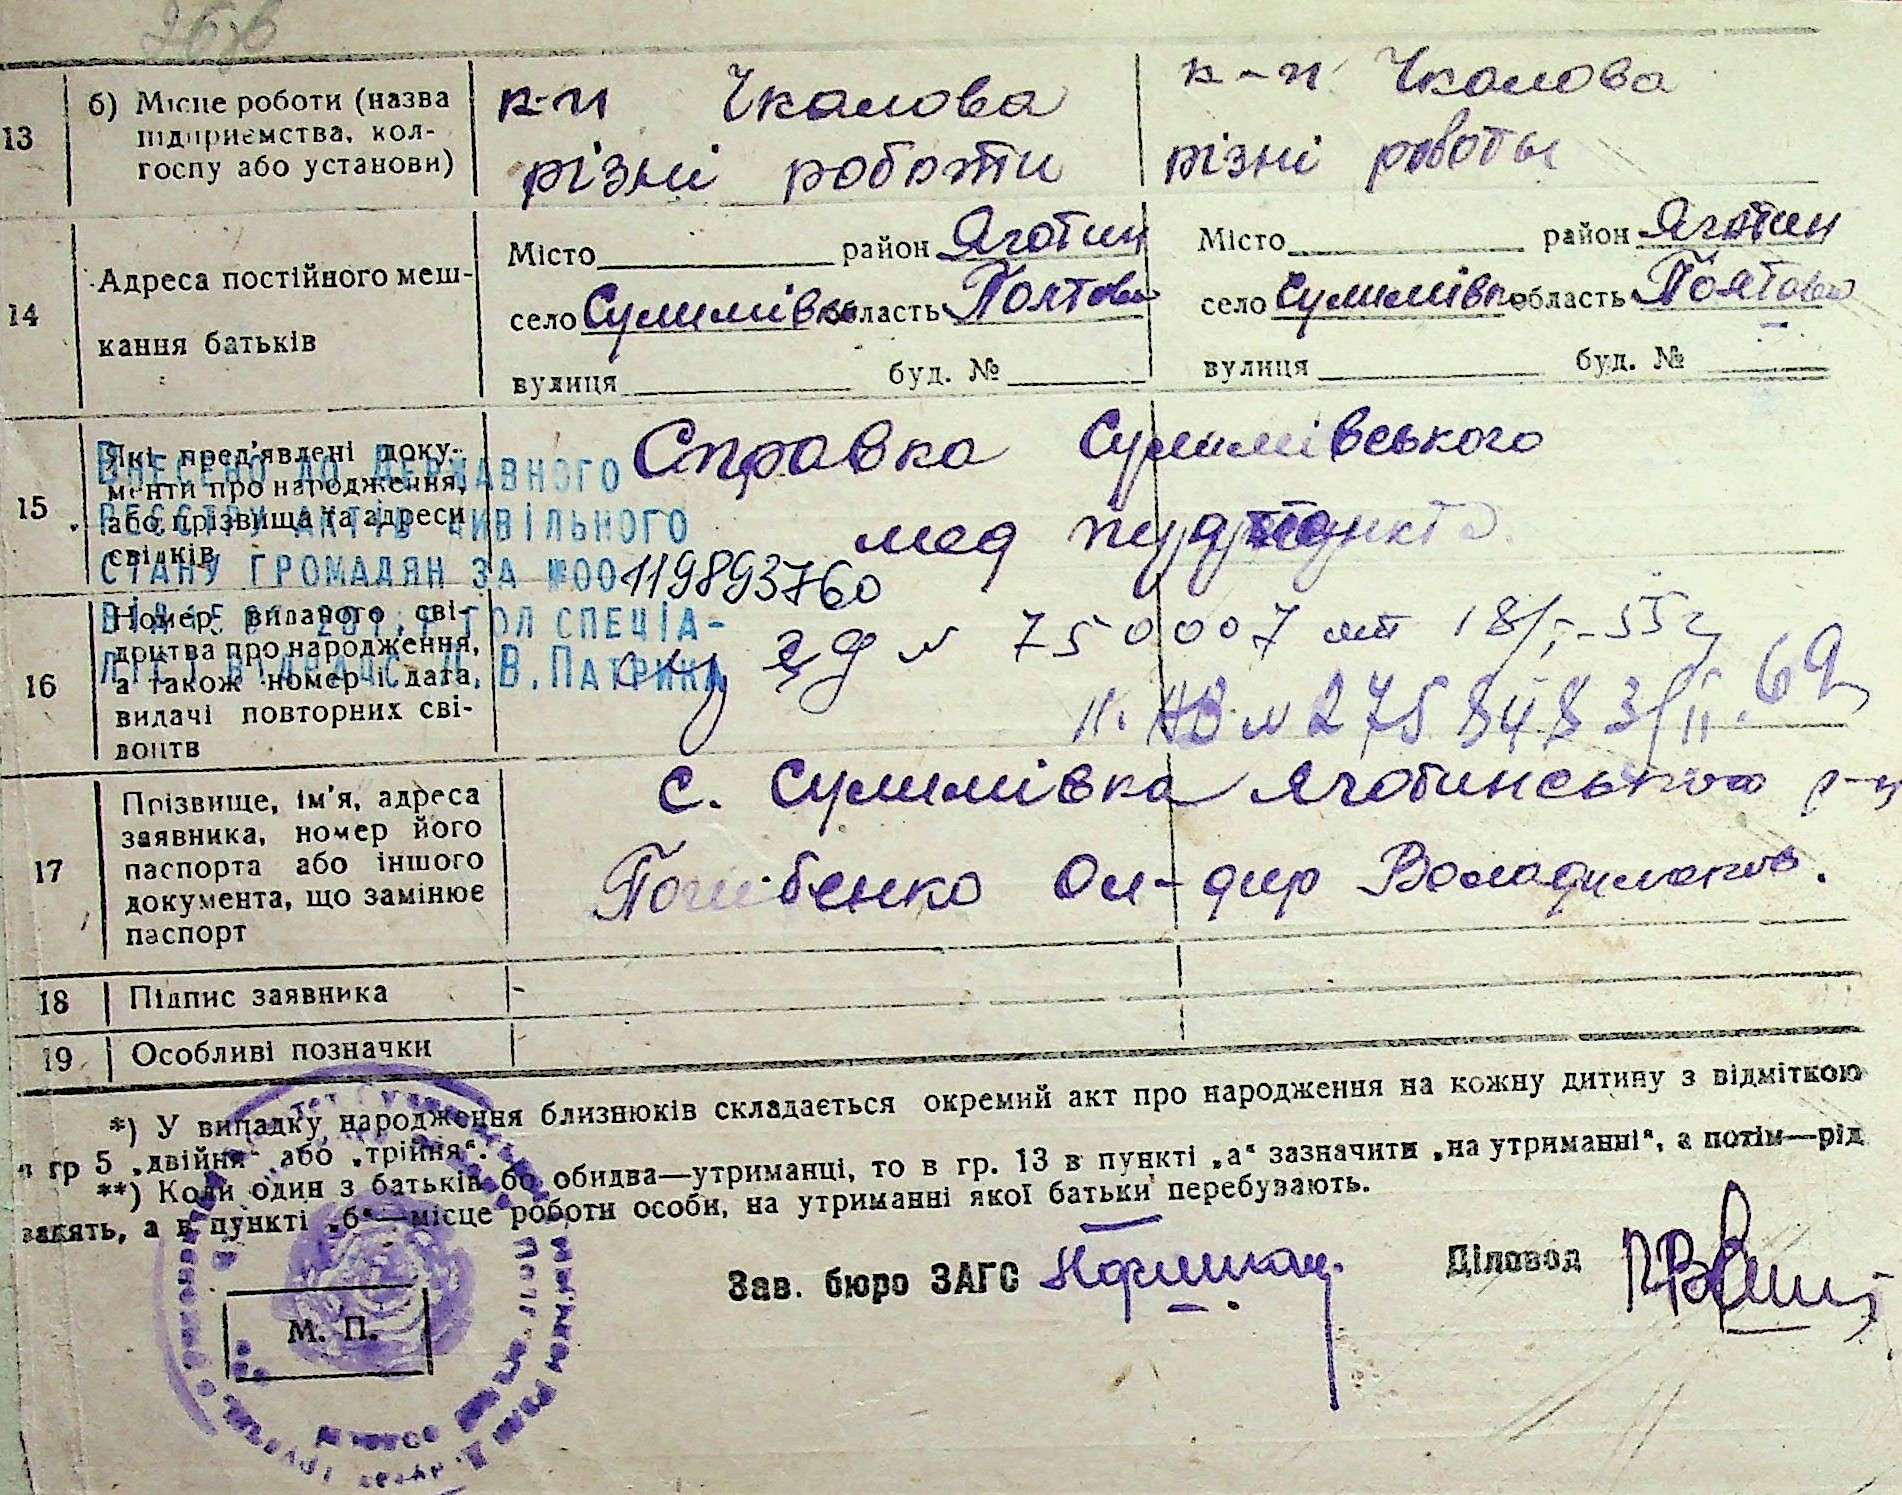 13
б) Місце роботи (назва
підприємства, кол-
госпу або установи)
к-п Чкалова
різні роботи
к-п Чкалова
різні роботы
14
Адреса постійного меш-
кання батьків
Місто район Яготин
село Сулимівка область Полтовс
вулиця буд. №
Місто район Яготин
село Сулимівка область Полтовс
вулиця буд. №
15
Які пред'явлені доку-
менти про народження,
або прізвища та адреси
свідків
Справка Сулимівського
мед пункта
ВНЕСЕНО ДО ДЕРЖАВНОГО
РЕЄСТРУ АКТІВ ЦИВІЛЬНОГО
СТАНУ ГРОМАДЯН ЗА №00119893760
ГОЛ СПЕЦІА-
ЛІСТ В.ПАТРИКА
16
Номер виданого сві-
доцтва про народження,
а також номер і дата
видачі повторних сві-
доцтв
№ 750007 от 18/ 55г
№ 275848 3/II.69г
17
Прізвище, ім'я, адреса
заявника, номер його
паспорта або іншого
документа, що замінює
паспорт
с. Сулимівка Яготинського р-ну
Погибенко Ол-дир Володимиров.
18
Підпис заявника
19
Особливі позначки
*) У випадку народження близнюків складається окремий акт про народження на кожну дитину з відміткою
в гр 5 „двійня“ або „трійня“.
**) Коли один з батьків бо обидва—утриманці, то в гр. 13 в пункті „а“ зазначити „на утриманні“, а потім—рід
занять, а в пункті „б“—місце роботи особи, на утриманні якої батьки перебувають.
Зав. бюро ЗАГС
Діловод
М. П.